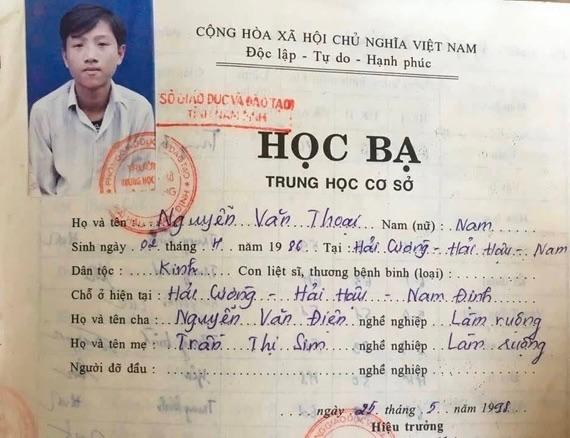 CỘNG HÒA XÃ HỘI CHỦ NGHĨA VIỆT NAM
Độc lập - Tự do - Hạnh phúc
SỞ GIÁO DỤC VÀ ĐÀO TẠO
TỈNH NAM ĐỊNH
HỌC BẠ
TRUNG HỌC CƠ SỞ
Họ và tên : Nguyễn Văn Thoại Nam (nữ) : Nam
Sinh ngày 02 tháng 7 năm 1986 Tại : Hải Cường - Hải Hậu - Nam
Dân tộc : Kinh Con liệt sĩ, thương bệnh binh (loại) :
Chỗ ở hiện tại : Hải Cường - Hải Hậu - Nam Định
Họ và tên cha : Nguyễn Văn Điên nghề nghiệp Làm ruộng
Họ và tên mẹ : Trần Thị Sim nghề nghiệp Làm ruộng
Người đỡ đầu : nghề nghiệp
ngày 25 tháng 5 năm 1998
Hiệu trưởng